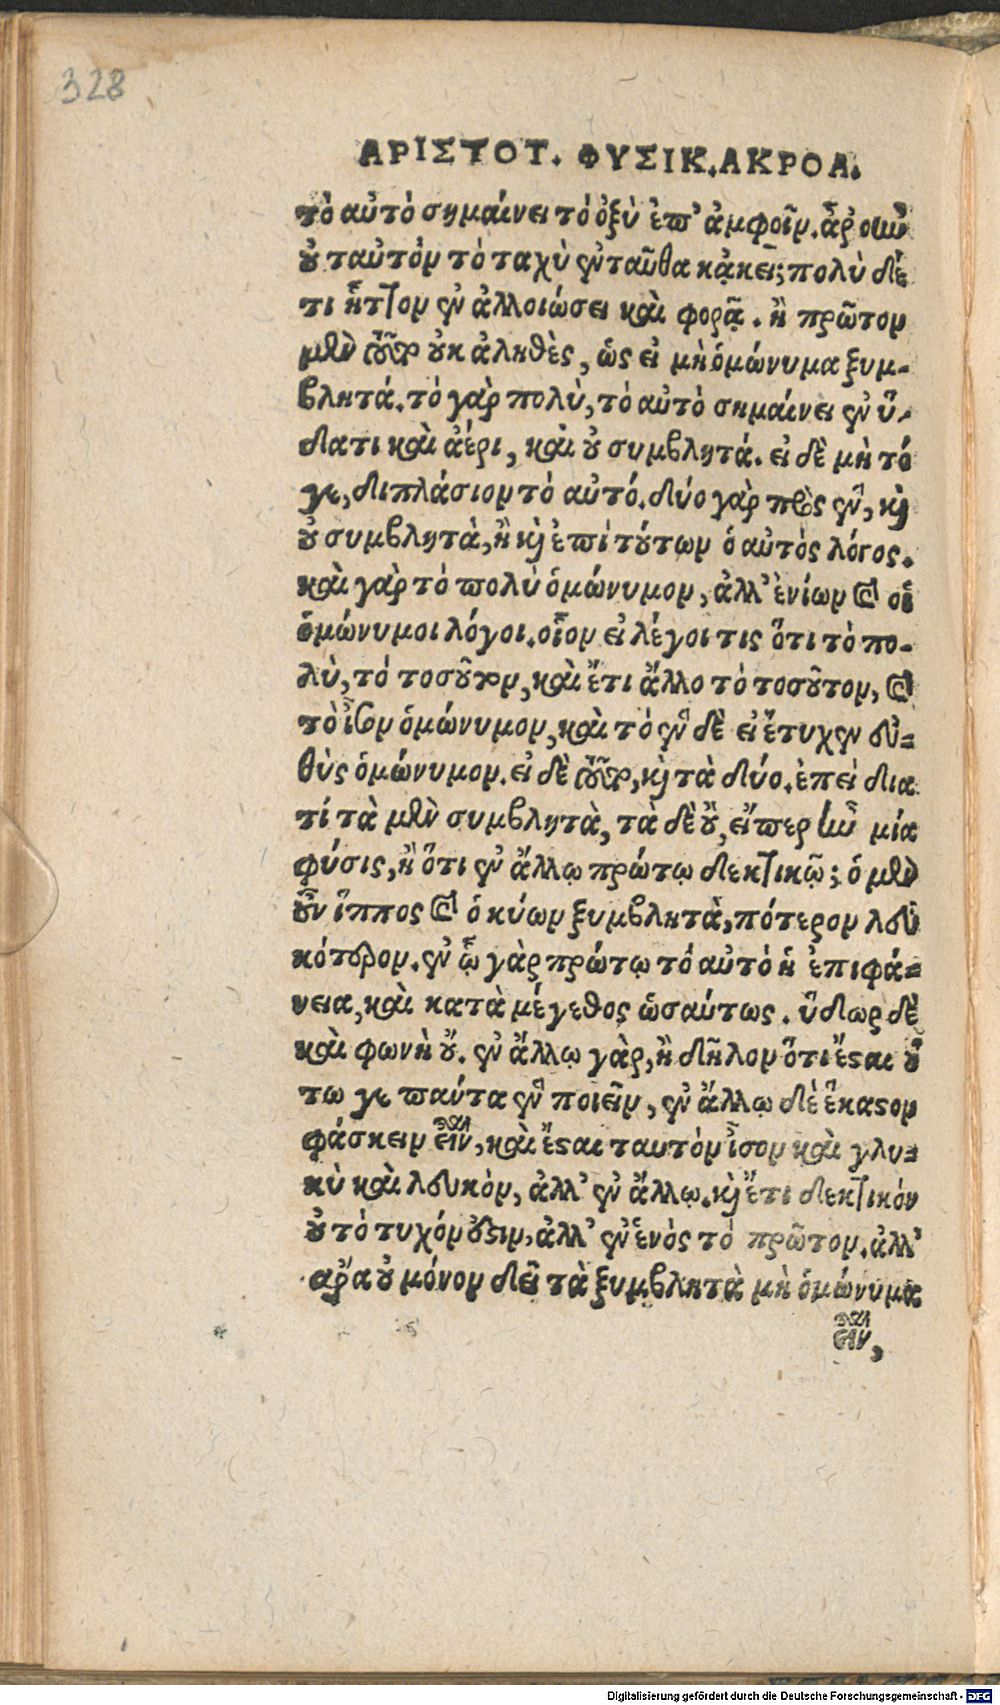 328
ΑΡΙΣΤΟΤ. ΦΥΣΙΚ. ΑΚΡΟΑ.
τὸ αὐτὸ σημαίνει τὸ ὀξὺ ἐπ' ἀμφοῖν. ἆρ' οὖν
οὐ ταὐτὸν τὸ ταχὺ ἐνταῦθα κἀκεῖ; πολὺ δέ
τι ἧττον ἐν ἀλλοιώσει καὶ φορᾷ. ἢ πρῶτον
μὲν τοῦτο οὐκ ἀληθὲς, ὡς εἰ μὴ ὁμώνυμα ξυμ-
βλητά. τὸ γὰρ πολὺ, τὸ αὐτὸ σημαίνει ἐν ὕ-
δατι καὶ ἀέρι, καὶ οὐ συμβλητά. εἰ δὲ μὴ τό
γε, διπλάσιον τὸ αὐτό. δύο γὰρ πρὸς ἓν, καὶ
οὐ συμβλητὰ, ἢ καὶ ἐπὶ τούτων ὁ αὐτὸς λόγος.
καὶ γὰρ τὸ πολὺ ὁμώνυμον, ἀλλ' ἐνίων καὶ οἱ
ὁμώνυμοι λόγοι. οἷον εἰ λέγοι τις ὅτι τὸ πο-
λὺ, τὸ τοσοῦτον, καὶ ἔτι ἄλλο τὸ τοσοῦτον, καὶ
τὸ ἴσον ὁμώνυμον, καὶ τὸ ἓν δὲ εἰ ἔτυχεν εὐ-
θὺς ὁμώνυμον. εἰ δὲ τοῦτο, καὶ τὰ δύο. ἐπεὶ δια
τί τὰ μὲν συμβλητὰ, τὰ δὲ οὔ, εἴπερ ἦν μία
φύσις, ἢ ὅτι ἐν ἄλλῳ πρώτῳ δεκτικῷ; ὁ μὲν
οὖν ἵππος καὶ ὁ κύων ξυμβλητὰ, πότερον λευ
κότερον. ἐν ᾧ γὰρ πρώτῳ τὸ αὐτὸ ἡ ἐπιφά-
νεια, καὶ κατὰ μέγεθος ὡσαύτως. ὕδωρ δὲ
καὶ φωνὴ οὔ. ἐν ἄλλῳ γὰρ, ἢ δῆλον ὅτι ἔσται οὕ
τω γε πάντα ἓν ποιεῖν, ἐν ἄλλῳ δὲ ἕκαστον
φάσκειν εἶναι, καὶ ἔσται ταυτὸν ἶσον καὶ γλυ-
κὺ καὶ λευκὸν, ἀλλ' ἐν ἄλλῳ. καὶ ἔτι δεκτικὸν
οὐ τὸ τυχόν ἐστιν, ἀλλ' ἐν ἑνὸς τὸ πρῶτον. ἀλλ'
ἆρα οὐ μόνον δεῖ τὰ ξυμβλητὰ μὴ ὁμώνυμα
εἶναι,
Digitalisierung gefördert durch die Deutsche Forschungsgemeinschaft - DFG